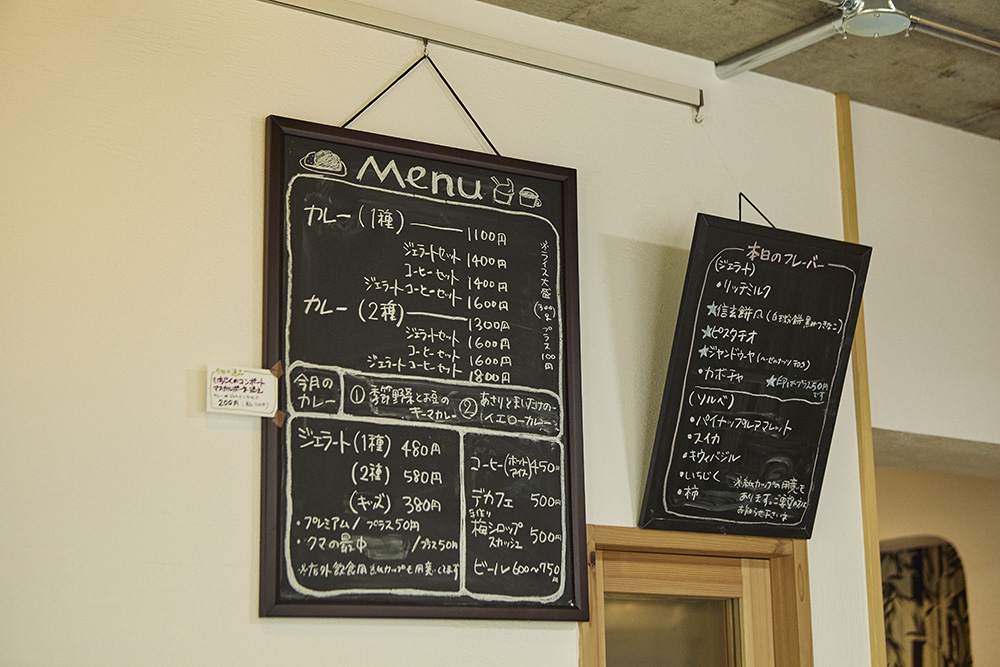 Menu
カレー(1種) 1100円
ジェラートセット 1400円
コーヒーセット 1400円
ジェラートコーヒーセット 1600円
カレー(2種) 1300円
ジェラートセット 1600円
コーヒーセット 1600円
ジェラートコーヒーセット 1800円
※ライス大盛(300g)プラス100円
今月のカレー
① 季節野菜とお豆の
キーマカレー
② あさりとまいたけの
イエローカレー
ジェラート(1種) 480円
(2種) 580円
(キッズ) 380円
・プレミアム/プラス50円
・クマの最中 /プラス50円
※店外飲食用紙カップも用意してます
コーヒー(ホット アイス) 450円
デカフェ 500円
手作り
梅シロップ
スカッシュ 500円
ビール 600〜750円
コンポート
200円
本日のフレーバー
(ジェラート)
・リッチミルク
★信玄餅風(
★ピスタチオ
★ジャンドゥーヤ(ヘーゼルナッツチョコ)
・カボチャ
★印はプラス50円
です
(ソルベ)
・パイナップルアマレット
・スイカ
・キウイバジル
・いちじく
・柿
※紙カップの用意も
あります。ご希望の方は
お知らせ下さいませ